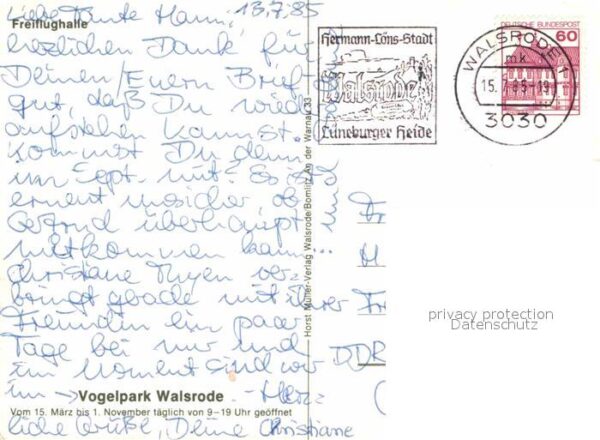 Liebe Tante Hanni, 13.7.85
Freiflughalle
herzlichen Dank für
Deinen/Euern Brief
gut, daß Du wieder
aufstehen kannst.
Kommst Du denn
im Sept. mit? Es ist
erneut unsicher ob
Gertrud überhaupt
mitkommen kann...
Christiane verbringt
gerade mit ihrer
Freundin ein paar
Tage bei mir und
im Moment sind wir
im → Vogelpark Walsrode - Herz-
Vom 15. März bis 1. November täglich von 9–19 Uhr geöffnet
liche Grüße, Deine Christiane
und
Horst Müller-Verlag Walsrode/Bomlitz An der Warnau 33
Hermann-Löns-Stadt
Walsrode
Lüneburger Heide
WALSRODE 1
mk
15.7.85-19
3030
DEUTSCHE BUNDESPOST
60
Fr
H
Fr
DDR
privacy protection
Datenschutz